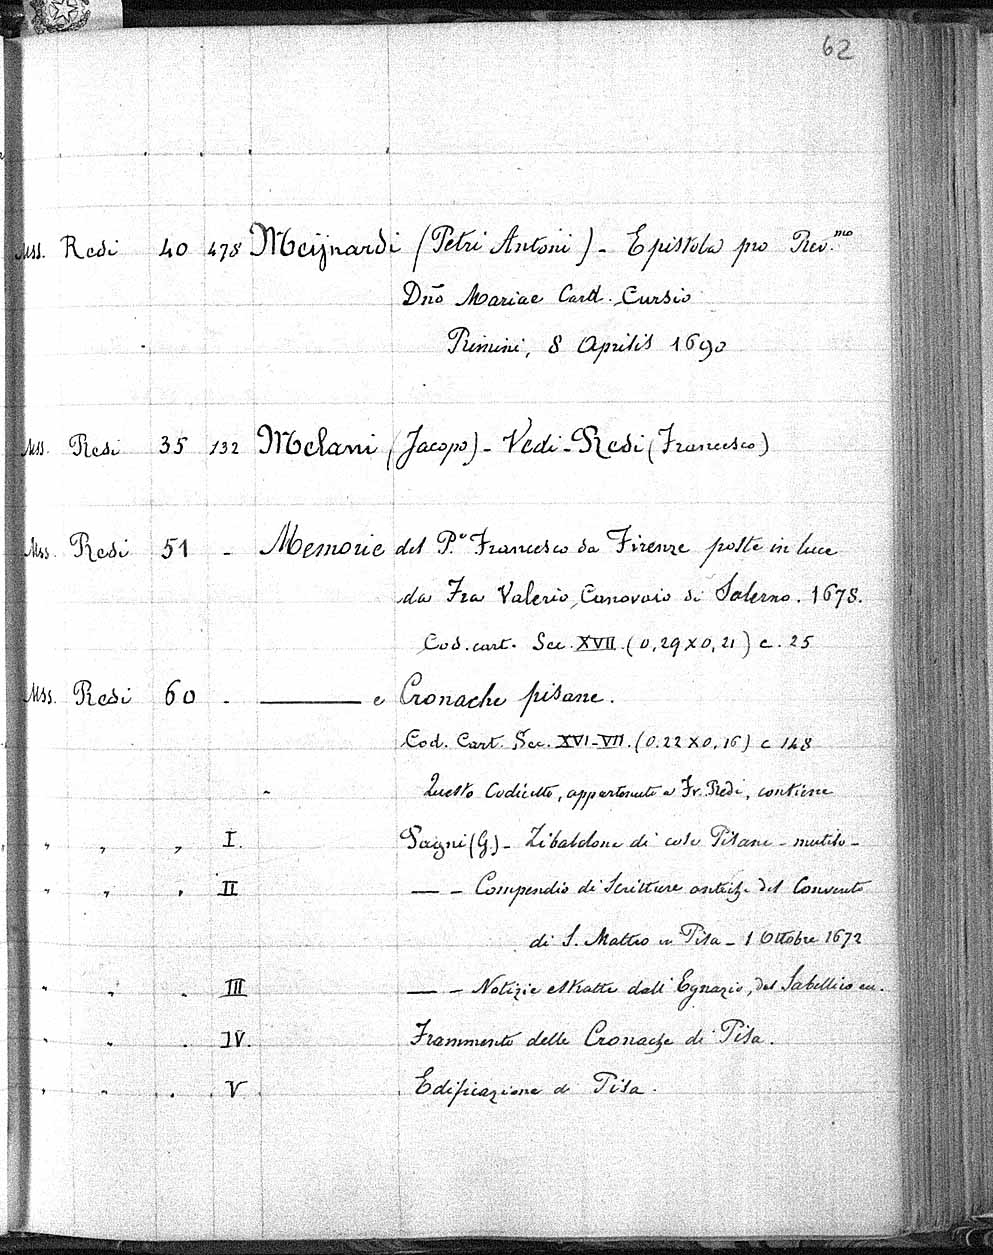 62
Mss. Redi 40 478 Meijnardi (Petri Antoni) - Epistola pro Rev.mo
Dño Mariae Card. Cursio
Rimini, 8 Aprilis 1690
Mss. Redi 35 132 Melani (Jacopo) - Vedi - Redi (Francesco)
Mss. Redi 51 - Memorie del P.e Francesco da Firenze poste in luce
da Fra Valerio, Canovaio di Salerno. 1678.
Cod. cart. Sec. XVII. (0,29 x 0,21) c. 25
Mss. Redi 60 - ——— e Cronache pisane.
Cod. Cart. Sec. XVI-VII. (0.22 x 0,16) c 148
Questo Codicetto, appartenuto a Fr. Redi, contiene
" " " I. (G.) - Zibaldone di cose Pisane - mutilo -
" " " II — - Compendio di Scritture antiche del Convento
di S. Matteo in Pisa - 1 Ottobre 1672
" " " III — - Notizie estratte dall'Egnazio, del Sabellico ecc.
" " " IV. Frammento delle Cronache di Pisa.
" " " V Edificazione di Pisa.